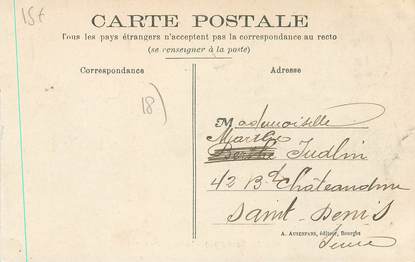 15f
CARTE POSTALE
Tous les pays étrangers n'acceptent pas la correspondance au recto
(se renseigner à la poste)
Correspondance
Adresse
18)
Mademoiselle
Marthe
Berthe Judlin
42 Bd Châteaudun
Saint-Denis
A. AUXENFANS, éditeur, Bourges
Seine